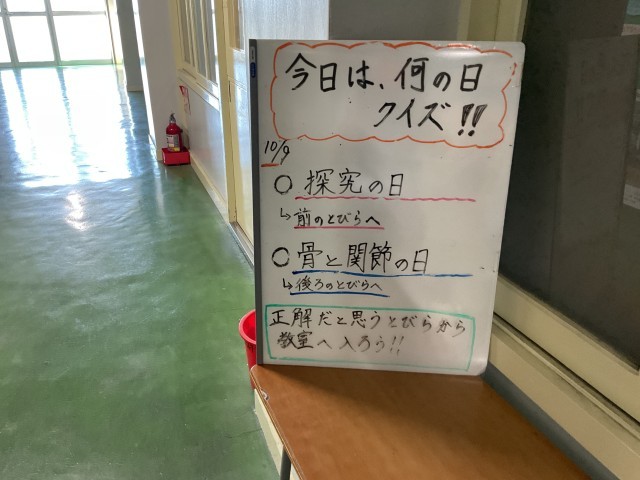 今日は、何の日
クイズ!!
10/9
○ 探究の日
↳前のとびらへ
○ 骨と関節の日
↳後ろのとびらへ
正解だと思うとびらから
教室へ入ろう!!